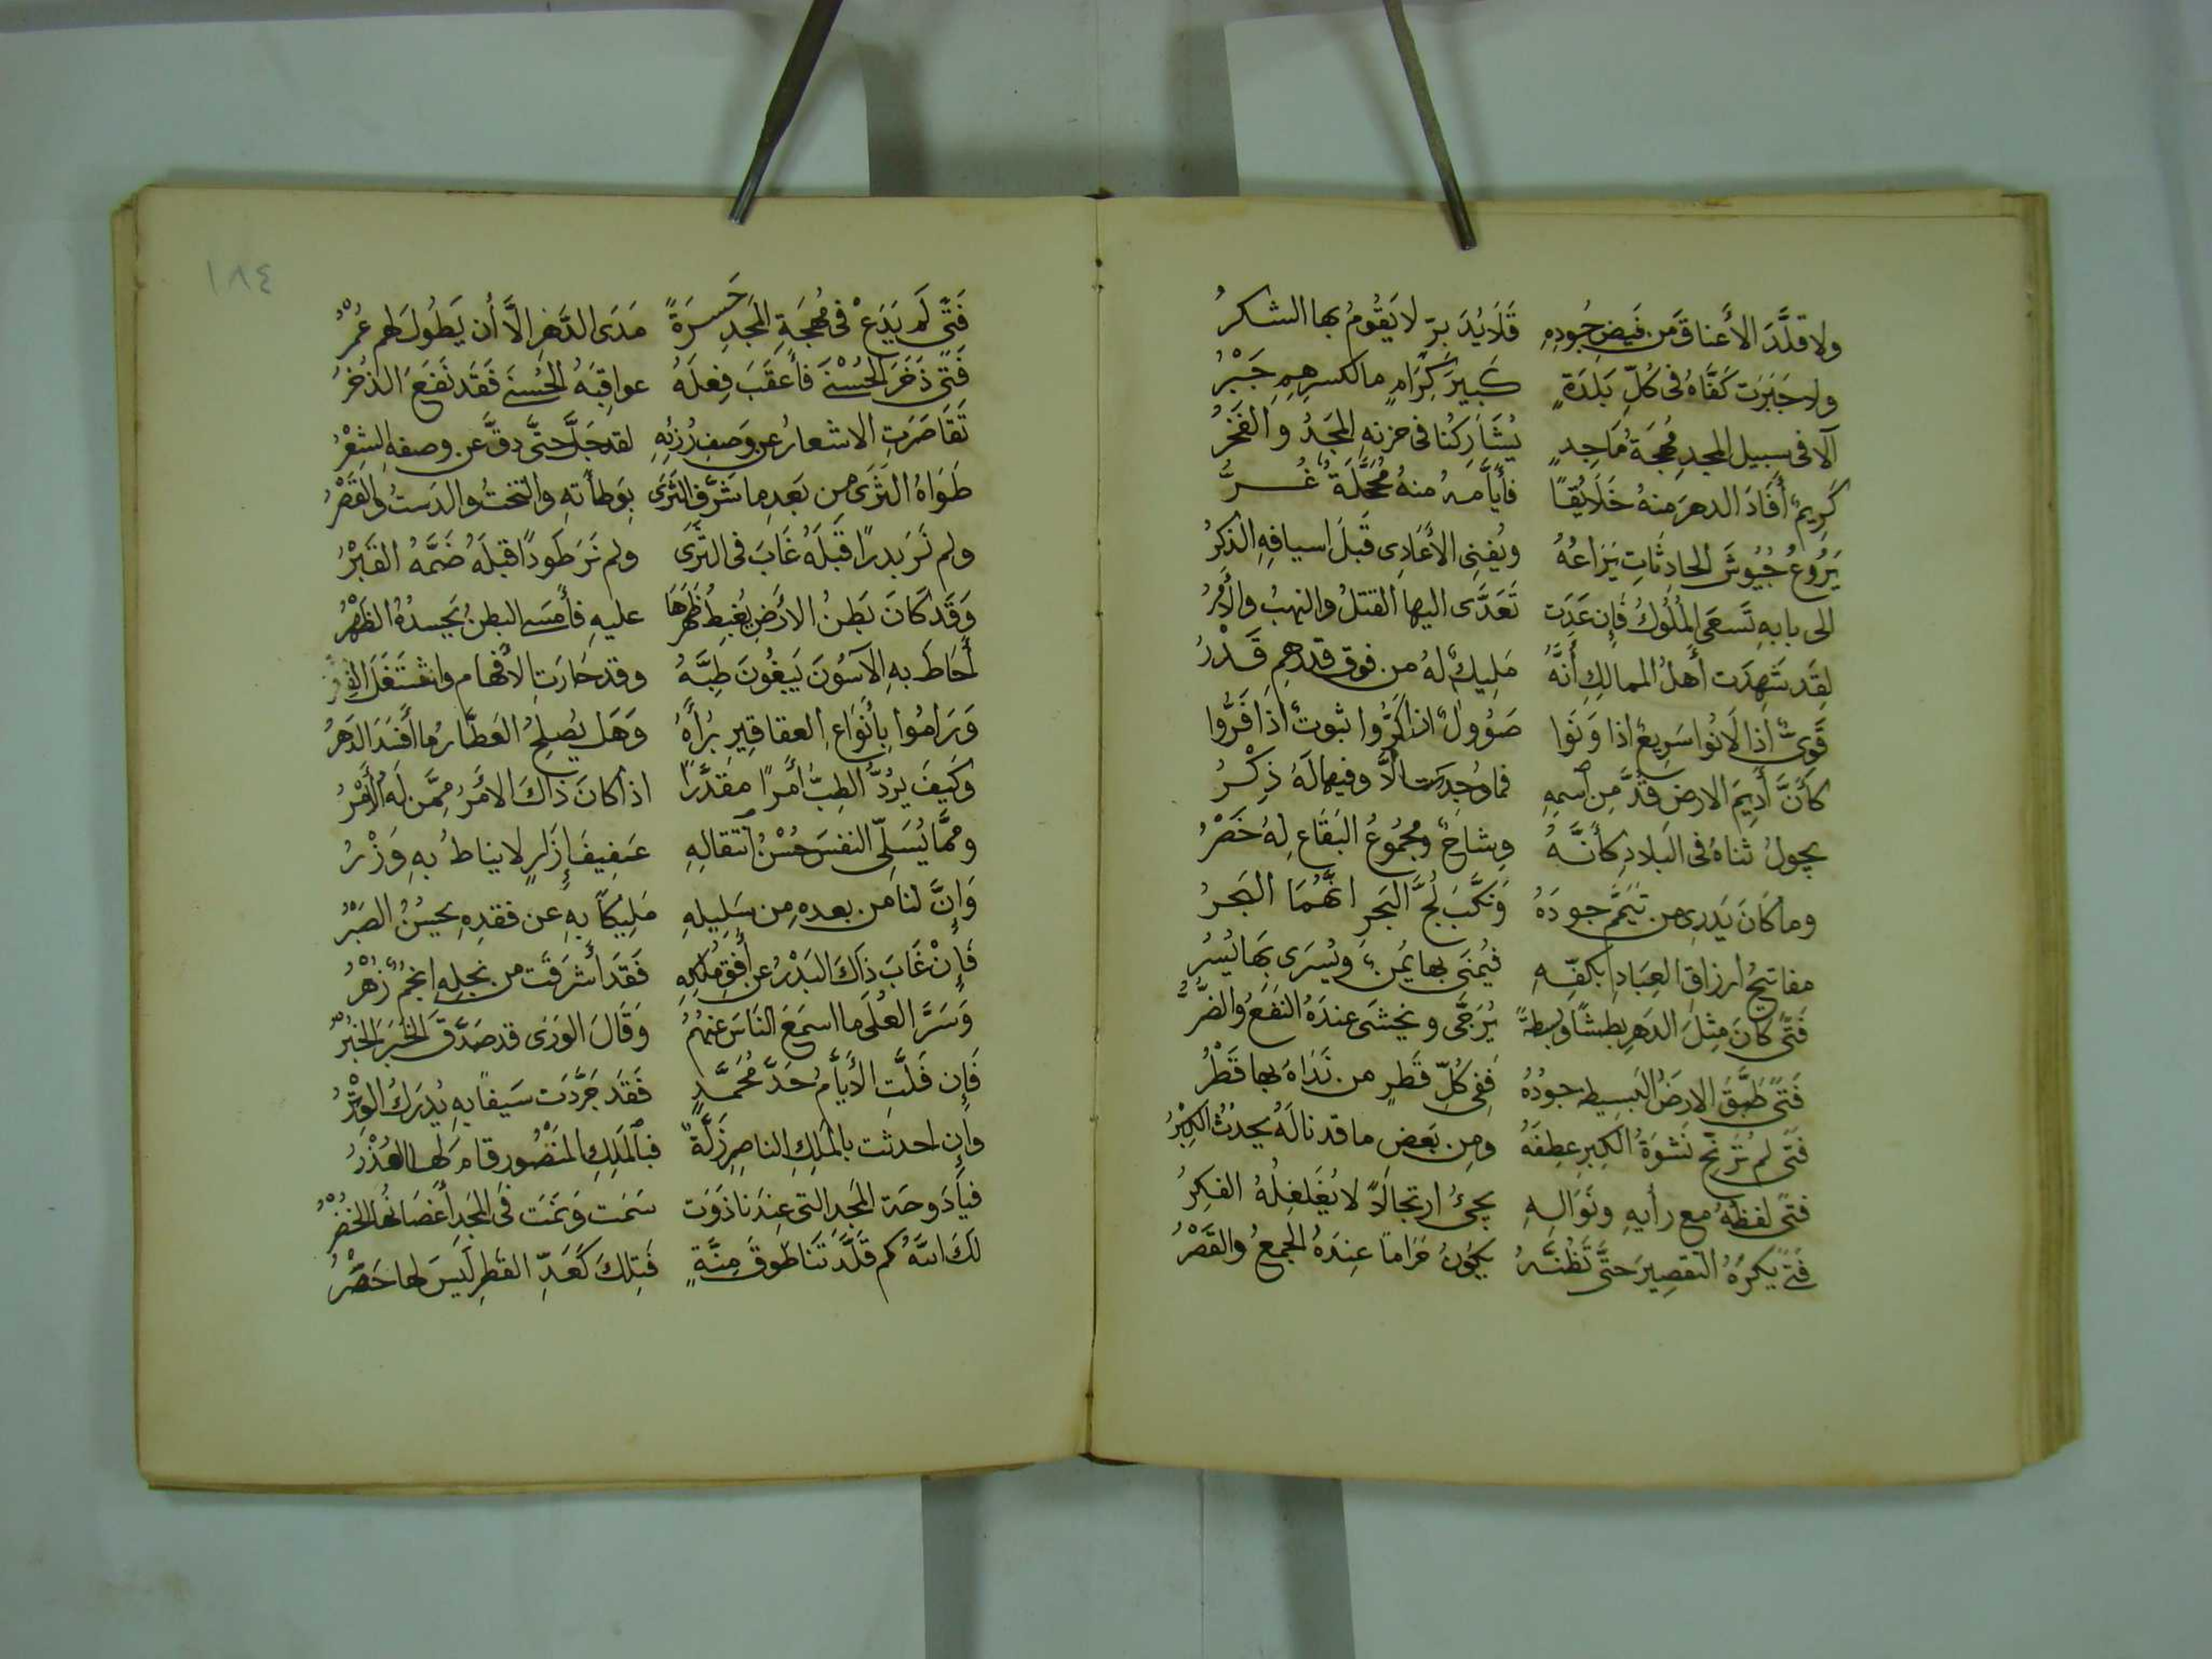 ولا قلَّدَ الأَعناقَ من فَيضِ جُودِهِ قَلَايُدَ برّ لا يَقُومُ بها الشكرُ
ولا جَبَرَت كَفَّاهُ فى كُلِّ بَلدَةٍ كَبيرَ كِرَامٍ ما لكسرِهِمِ جَبْرُ
آلا فى سبيل المجدِ مُهجَةُ مَاجِدٍ يُشَارِكُنا فى حزنهِ المجَدُ والفَخرُ
كَرِيمٌ أَفَادَ الدهرَ منهُ خَلَايُقًا فأَيَّامهُ منهُ مُحَجَّلَةٌ غُرُّ
يَرُوعُ جُيُوشَ الحادِثَاتِ يَرَاعُهُ ويُفنِى الأَعَادِى قَبلَ اسيافِهِ الذكرُ
الى بابهِ تَسعَى المُلُوكُ فَإِن عَدَت تَعَدَّى اليها القتلُ والنهبُ والأَمرُ
لقَد شَهِدَت أَهلُ الممالكِ أَنَّهُ مَلِيكٌ لهُ من فوق قدرهِم قَدْرُ
قَوِىٌّ اذا لَانُوا سَرِيعٌ اذا وَنَوا صَؤُولٌ اذا كَرُّوا ثبوتٌ اذَا فَرُّوا
كأَنَّ أَدِيمَ الارض قدَّ مِن اسمِهِ فما وُجِدَت الَّا وفيها لَهُ ذِكْرُ
يجولُ ثناهُ فى البلادِ كأَنَّهُ وِشاحٌ ومجمُوعُ البَقَاعِ لهُ خَصْرُ
وما كَانَ يَدرِى من تَيَمَّم جودَهُ وَنكَّبَ لُجَّ البَحرِ انَّهُمَا البَحرُ
مفاتيحُ ارزاقِ العِبَادِ بكفِّهِ فيُمنَى بها يُمنٌ ويُسرَى بِهَا يُسْرُ
فَتًى كَانَ مِثلَ الدَهرِ بطشًا وبسطةً يُرَجَّى ويُخشَى عندَهُ النَفعُ والضُّرُّ
فَتًى طَبَّقَ الارضَ البَسِيطه جودُهُ ففى كُلِّ قَطرٍ من نَدَاهُ بها قَطْرُ
فَتًى لم تُرَنِّح نَشوَةُ الكِبرِ عطفَهُ ومِن بَعضِ ما قد نالَهُ يحدُثُ الكِبْرُ
فتًى لفظهُ مع رأيهِ ونَوَالِهِ يجئُ ارتجالًا لا يُغَلغِلُهُ الفكرُ
فَتًى يكرَهُ التقصِيرَ حتَّى تَظُنَّهُ يَكونُ حَرَامًا عِندَهُ الجمعُ والقَصْرُ
١٨٤
فَتًى لَم يَدَعْ فى مُهجَةِ المَجدِ حَسرَةً مَدَى الدَهرِ الَّا أَن يَطُولَ لهم عُمْرُ
فَتًى ذَخَرَ الحُسْنَى فأَعقَبَ فِعلَهُ عواقِبَهُ الحُسنَى فَقَد نَفَعَ الذخرُ
تَقَاصَرَتِ الاشعارُ عن وَصفِ رُزئِهِ لقد جَلَّ حتَّى دقَّ عن وصفهِ الشعْرُ
طَوَاهُ الثَرَى مِن بَعدِ ما شَرَّف الثَرَى بِوَطأَتهِ والتختُ والدَستُ والقَصْرُ
ولم نَرَ بدرًا قَبلَهُ غَابَ فى الثَّرَى ولم نَرَ طَودًا قبلَهُ ضَمَّهُ القَبْرُ
وَقَد كَانَ بَطنُ الارَضِ يُغبِطُ ظَهرَهَا عليهِ فأَمسَى البطنُ يَحسدُهُ الظَهْرُ
أَحَاطَ بهِ الآسُونَ يَبغُونَ طِبَّهُ وقد حَارَتِ الأَفهام واشتَغَلَ الفكرُ
وَرَامُوا بأَنوَاعِ العقاقيِرِ بُرأَهُ وَهَل يُصلحُ العَطَّارُ ما افسَدَ الدَهرُ
وكَيفَ يرُدُّ الطِبُّ أَمرًا مقَدَّرًا اذا كانَ ذَاكَ الامرُ مِمَّن لَهُ الأَمْرُ
وممَّا يُسَلِّى النفسَ حُسْنُ انتقالِهِ عَفِيفَ إِزَارٍ لا يناطُ بهِ وَزْرُ
وَإِنَّ لنا من بعدهِ مِن سَلِيلِهِ مَليكًا بهِ عن فقدِهِ يحسُنُ الصَبْرُ
فَإِنْ غَابَ ذَاكَ البَدْرُ عن أُفقِ مُلكِهِ فَقَد أَشرَقَت من نجلهِ انجُمٌ زُهْرُ
وَسَرَّ العُلَى ما اسمَعَ النَاسَ عنهُمُ وَقَالَ الوَرَى قد صَدَّقَ الخَبَرَ الخُبْرُ
فَإِن فَلَّتِ الأَيَّامُ حَدَّ مُحَمَّدٍ فَقَد جَرَّدَت سَيفًا بهِ يُدرَكُ الوِتْرُ
وإِن احدثت بالمَلِكِ الناصِرِ زَلَّةً فبالمَلِكِ المَنْصُور قامَ لها العُذْرُ
فيا دَوحَة المَجدِ التى عِندَنا ذَوَت سَمَت وَنَمَت فى المجَدِ أَغصَانُها الخُضْرُ
لَكَ اللهُ كم قَلَّدتَنا طوقَ مِنَّةٍ فتِلكَ كَعَدِّ القَطرِ لَيسَ لها حَصْرُ